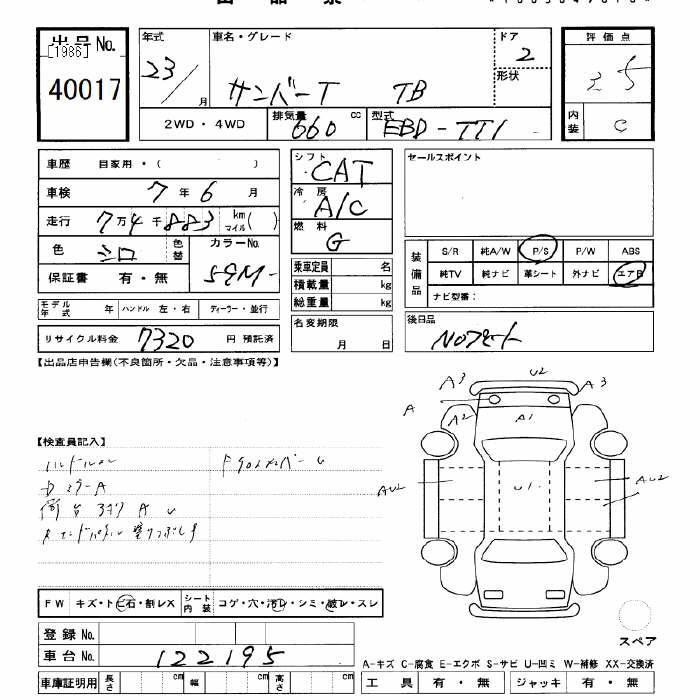 出品No.
[1986]
40017
年式
23/
月
車名・グレード
サンバーT TB
ドア
2
形状
評価点
3.5
内装
C
2WD・4WD
排気量
660
cc
型式
EBD-TT1
車歴 自家用・( )
車検 7年6月
走行 7万4千883 km マイル( )
色 シロ
色替
カラーNo.
保証書 有・無
モデル年式 年
ハンドル 左・右
ディーラー・並行
リサイクル料金 7320 円 預託済
シフト
CAT
冷房
A/C
燃料
G
乗車定員 名
積載量 kg
総重量 kg
名変期限
月 日
セールスポイント
装備品
S/R 純A/W P/S P/W ABS
純TV 純ナビ 革シート 外ナビ エアB
ナビ型番:
後日品
【出品店申告欄(不良箇所・欠品・注意事項等)】
【検査員記入】
A3 U2 A3
A A2 A1
AU2 U1 AU2
FW キズ・トビ石・割レX
シート内装
コゲ・穴・汚レ・シミ・破レ・スレ
登録No.
車台No. 122195
車庫証明用
長さ cm 幅 cm 高さ cm
スペア
A-キズ C-腐食 E-エクボ S-サビ U-凹ミ W-補修 XX-交換済
工具 有・無 ジャッキ 有・無